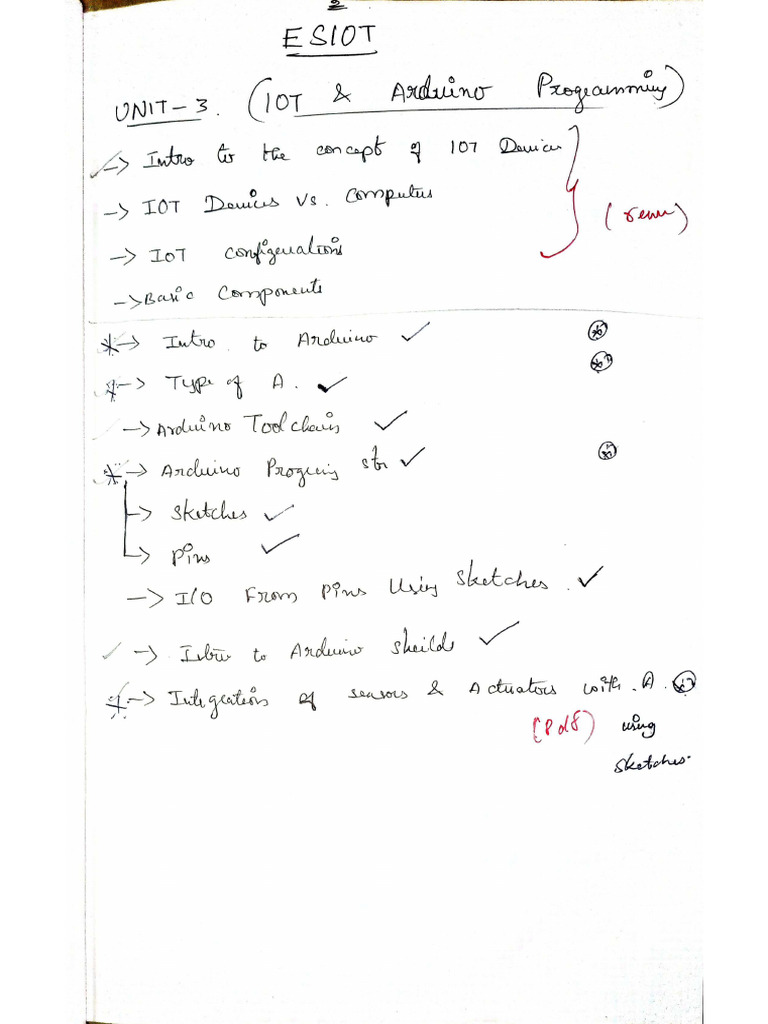 2
ESIOT
UNIT-3. (IOT & Arduino Programming)
-> Intro to the concept of IOT Devices
-> IOT Devices Vs. Computers
(renu)
-> IoT configurations
-> Basic Components
* -> Intro. to Arduino ✓
* -> Type of A. ✓
-> Arduino Toolchain ✓
* -> Arduino Prograing str ✓
-> Sketches ✓
-> Pins ✓
-> I/O From Pins Using Sketches. ✓
✓ -> Intro to Arduino Sheilds ✓
* -> Integrations of sensors & Actuators with. A.
(Pdf) using
sketches.